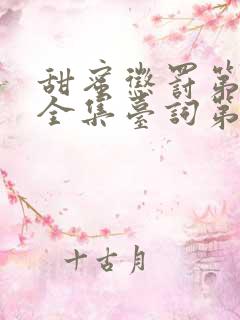 甜蜜懲罰第
全集臺詞第
十古月